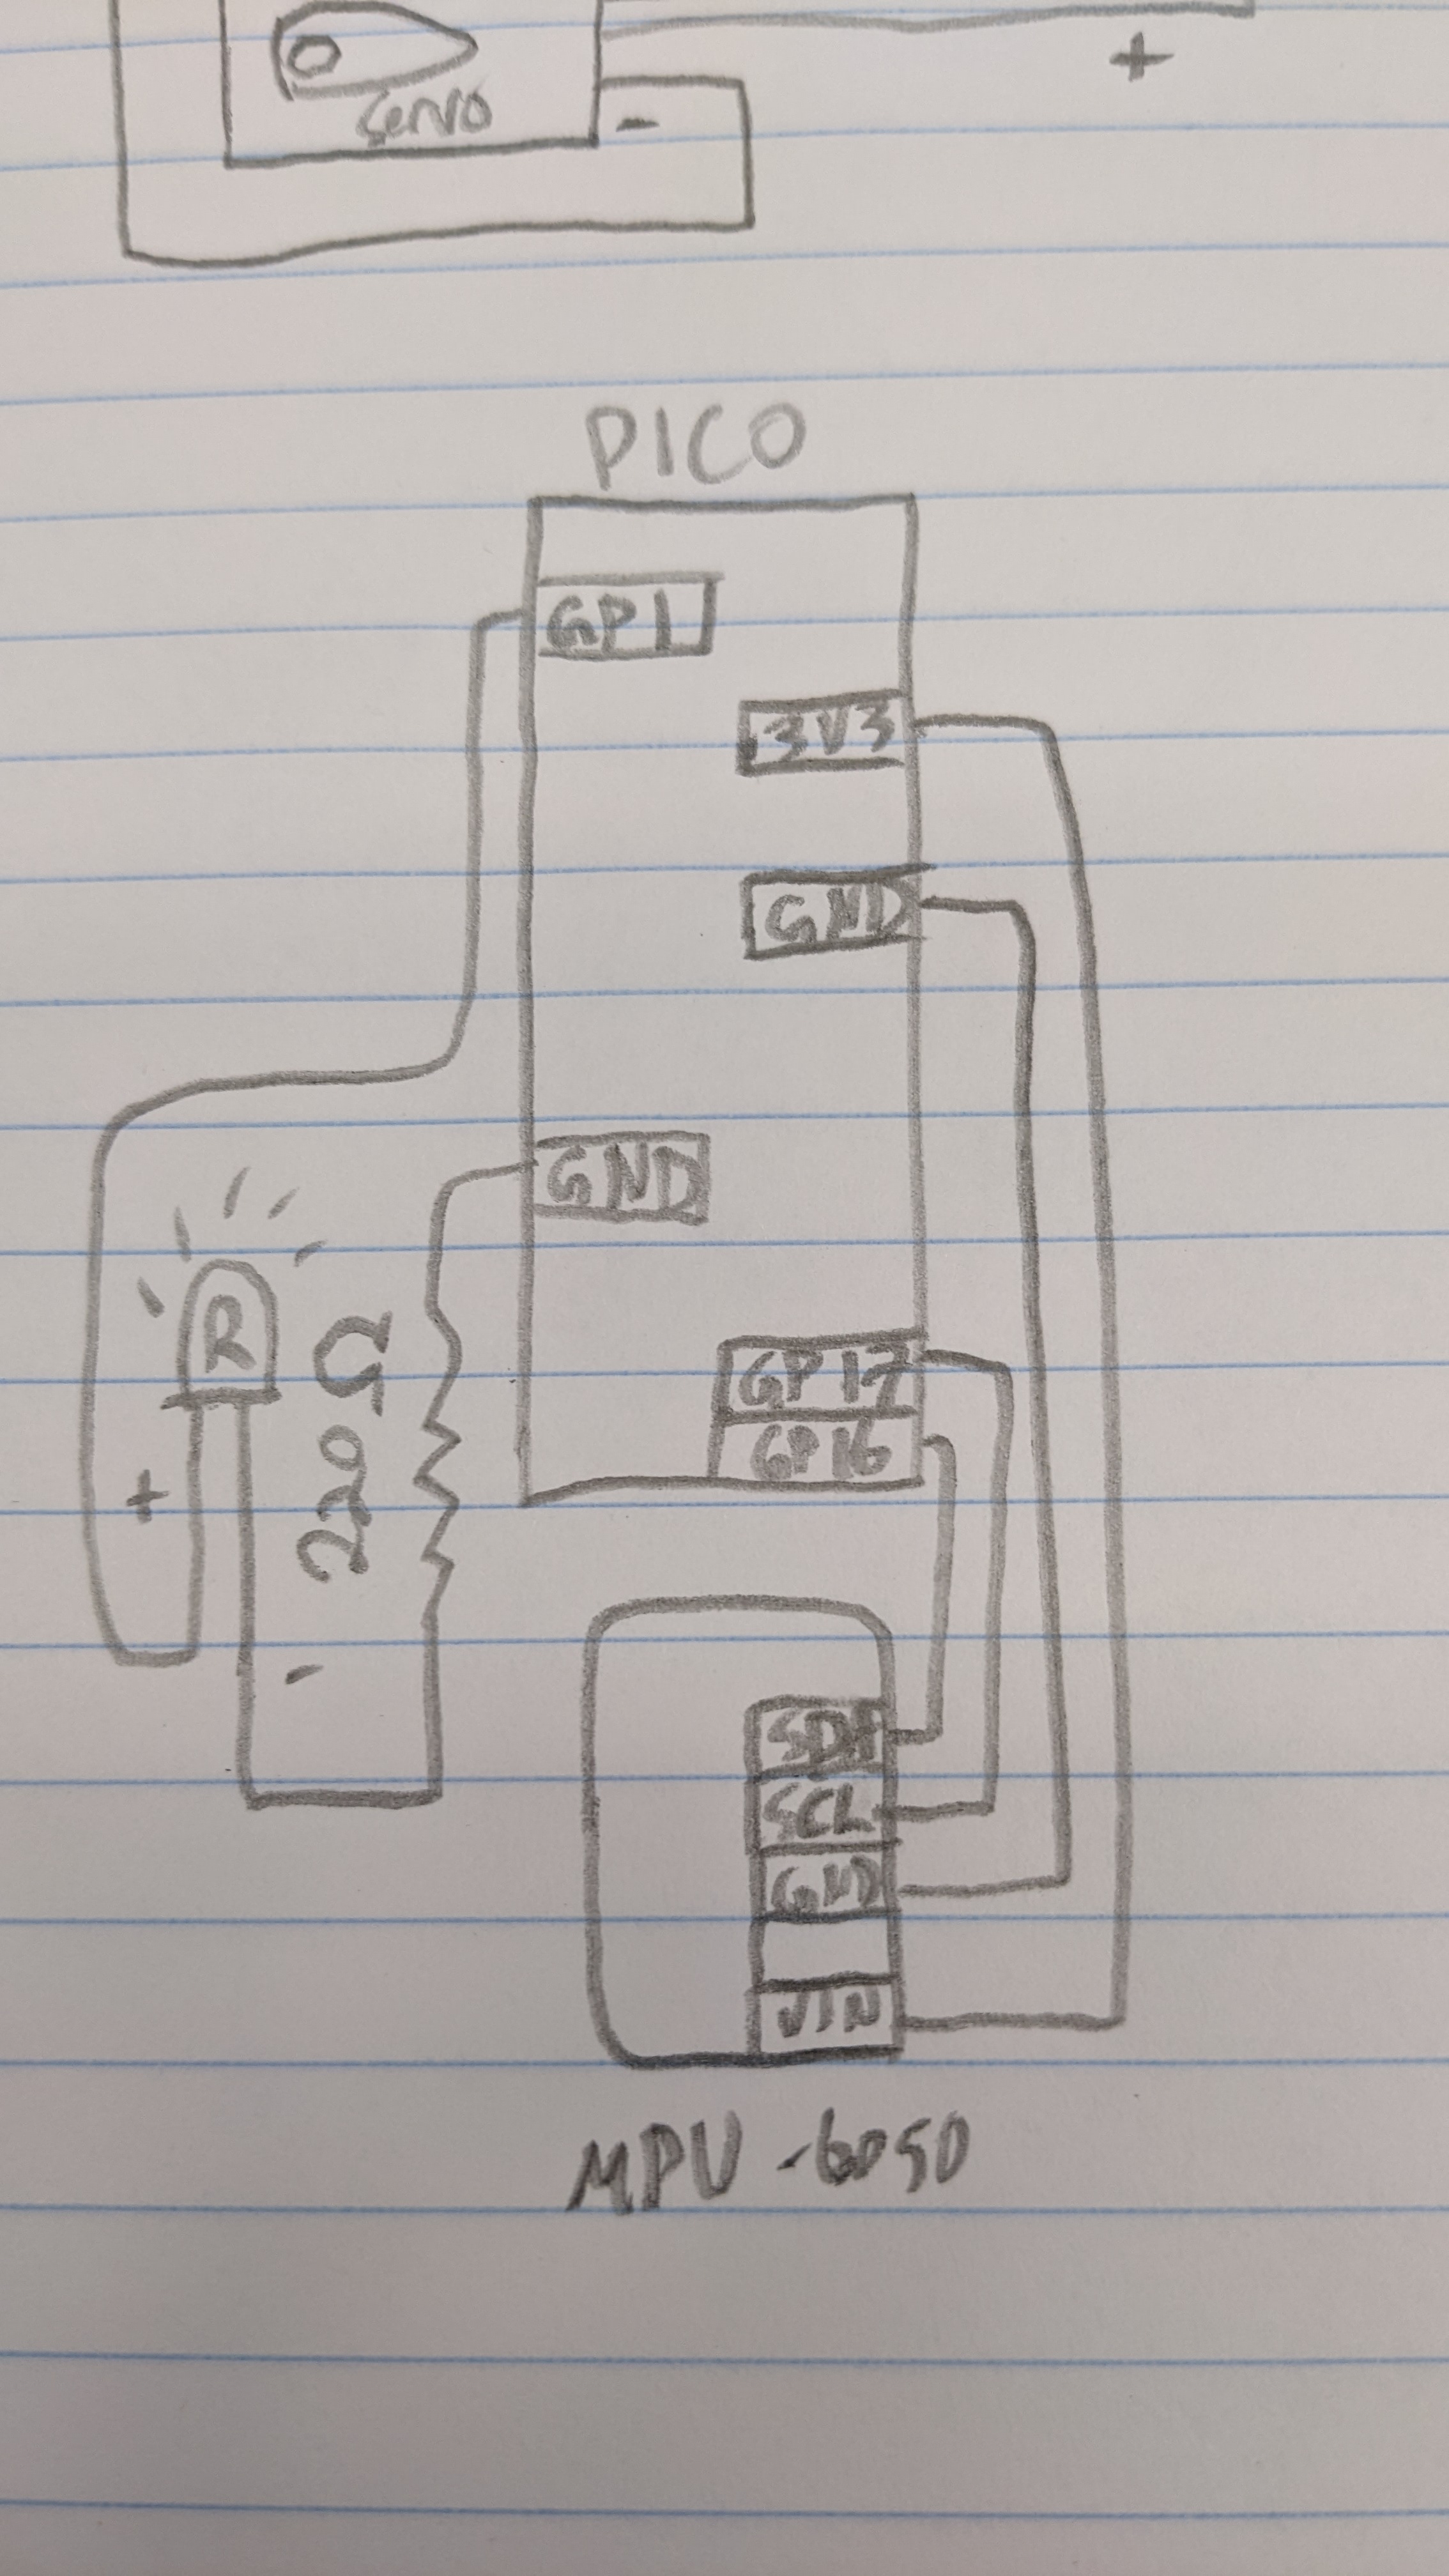 servo
-
+
PICO
GP1
3V3
GND
GND
R
220Ω
+
-
GP17
GP16
SDA
SCL
GND
VIN
MPU-6050